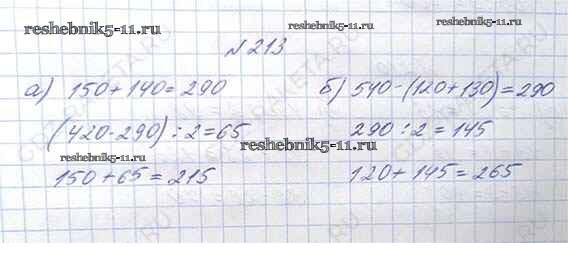 reshebnik5-11.ru
reshebnik5-11.ru
№ 213
а) 150 + 140 = 290
б) 540 - (120 + 130) = 290
(420 - 290) : 2 = 65
290 : 2 = 145
reshebnik5-11.ru
reshebnik5-11.ru
150 + 65 = 215
120 + 145 = 265